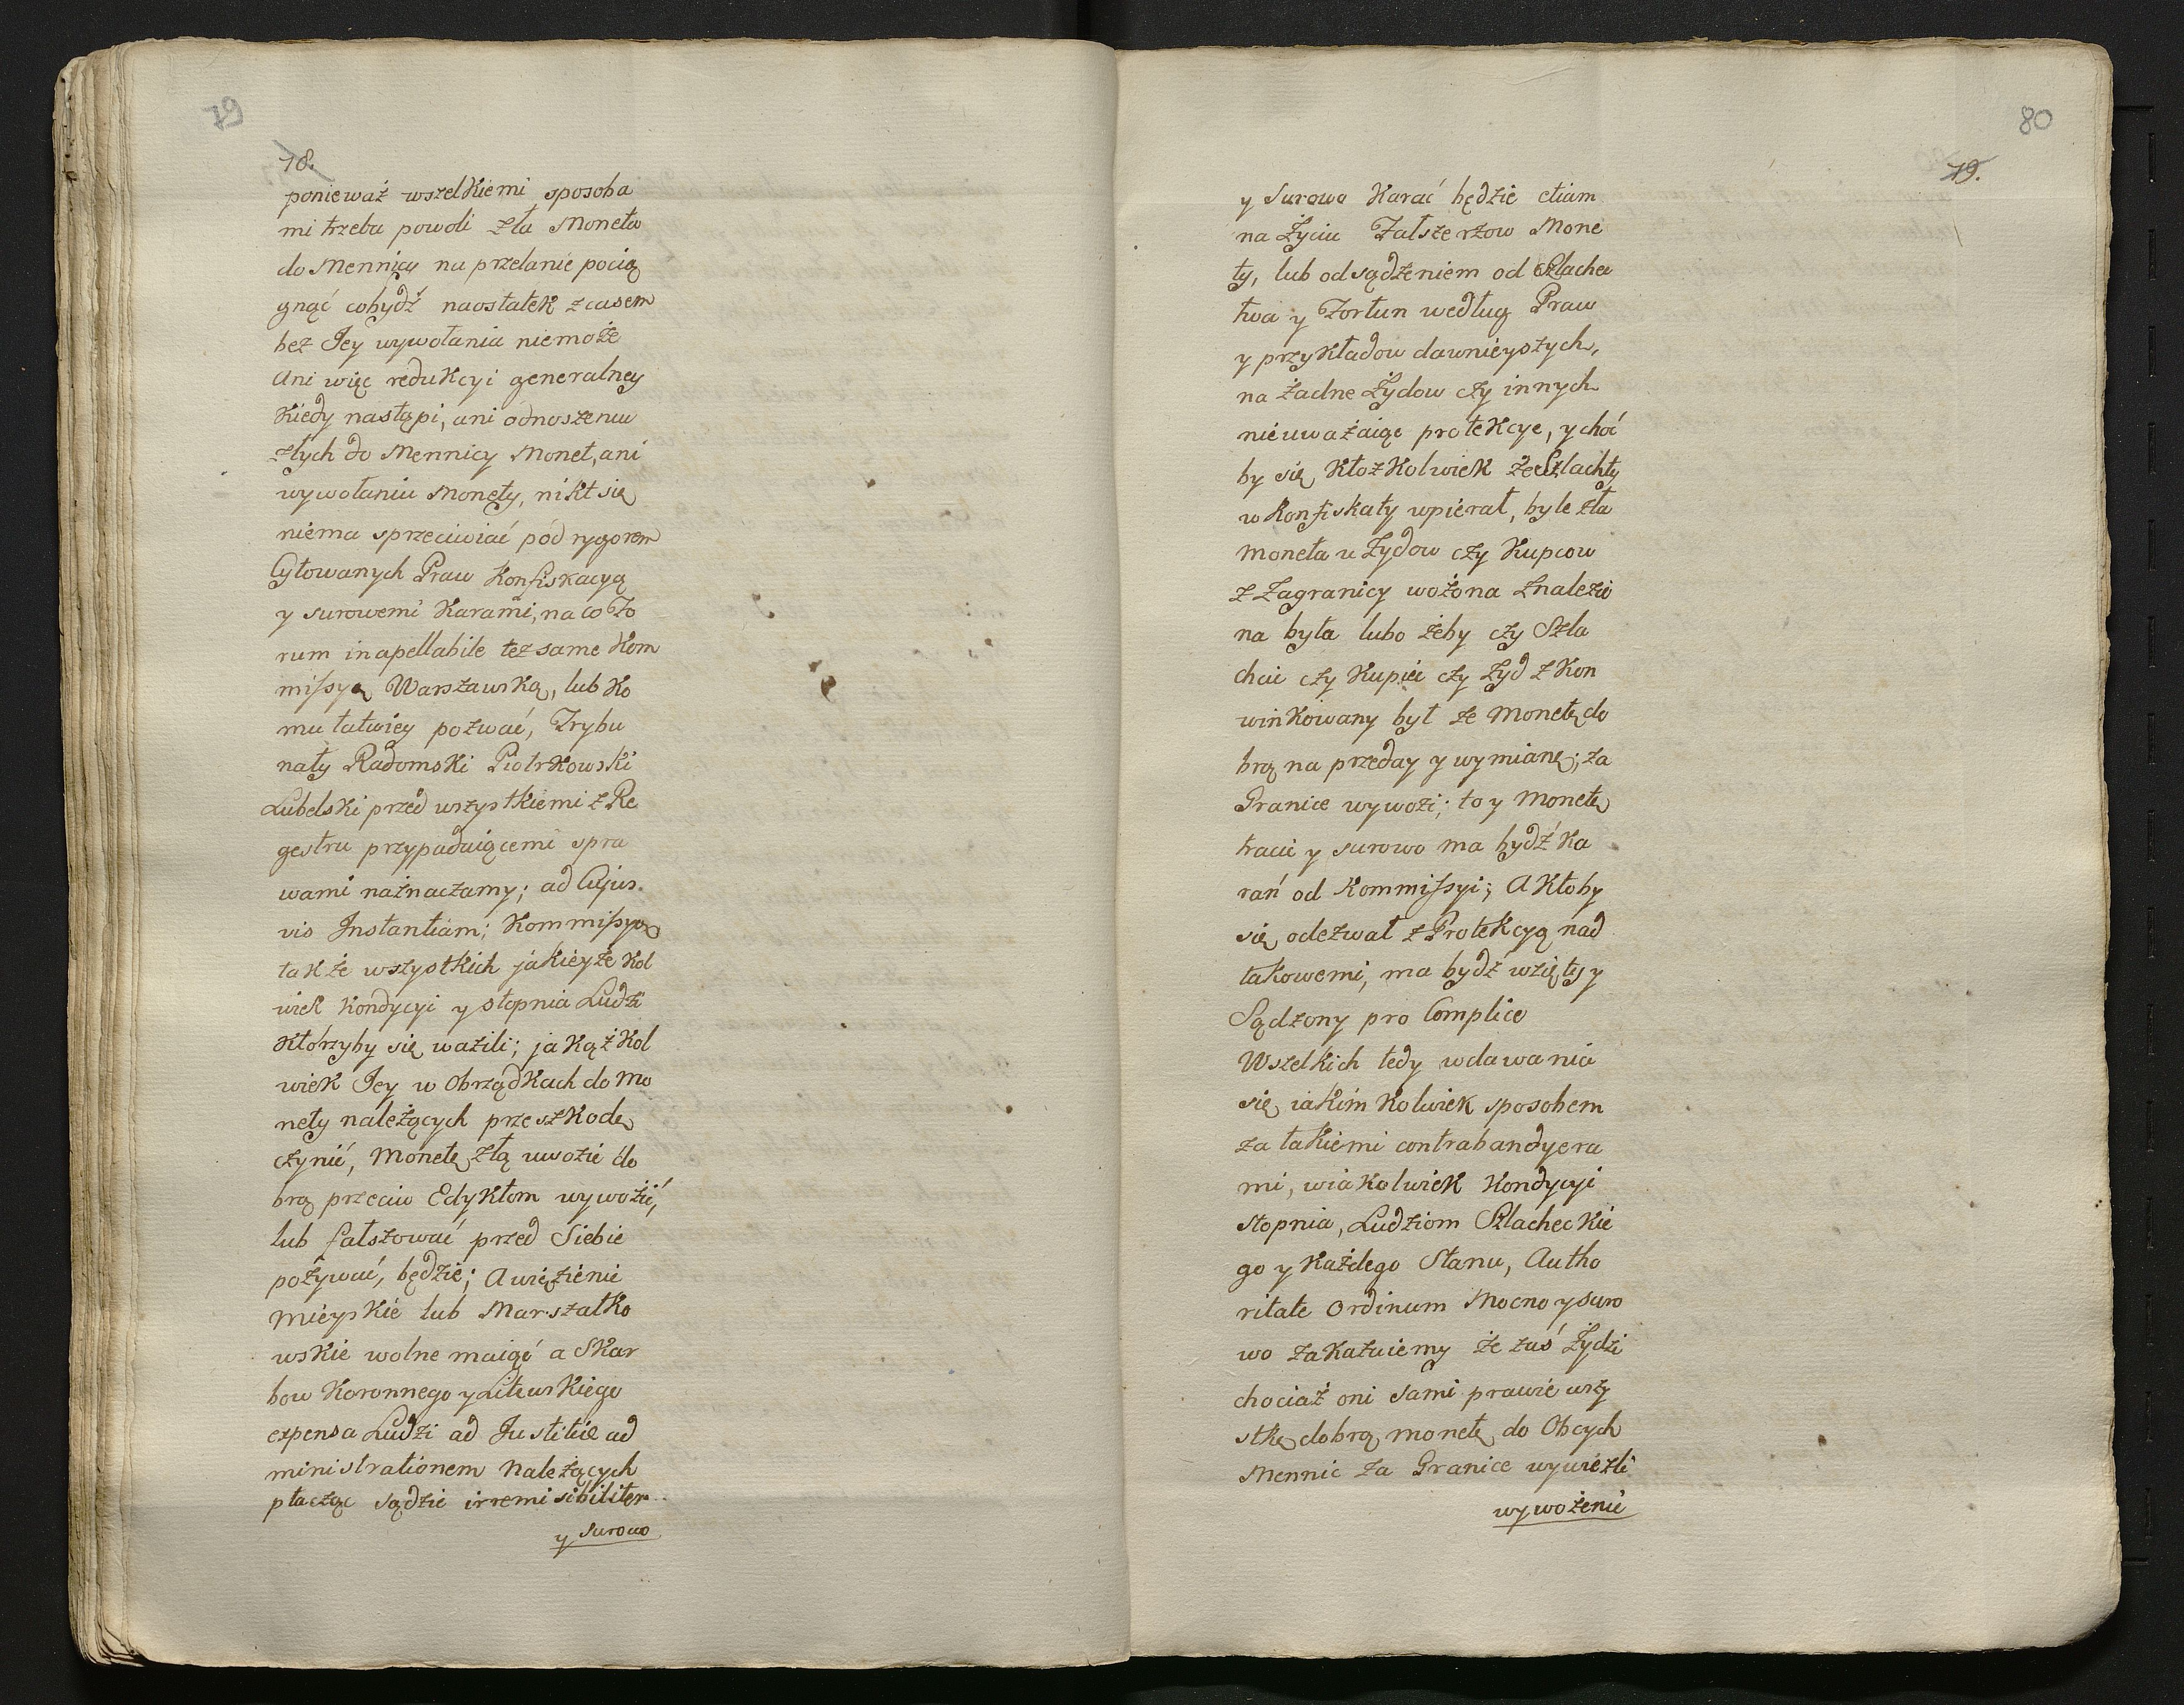 79
18.
ponieważ wszelkiemi sposoba
mi trzeba powoli zła Moneta
do Mennicy na przelanie pocią
gnąć cobydź naostatek z casem
bez Jey wywołania niemoże
Ani więc redukcyi generalney
Kiedy nastąpi, ani odnoszeniu
złych do Mennicy Monet, ani
wywołaniu Monety, nikt się
niema sprzeciwiać pod rygorem
Cytowanych Praw Konfiskacyą
y surowemi Karami, na co Fo
rum inapellabile tez same Kom
missyą Warszawską, lub Ko
mu łatwiey pozwać, Trybu
nały Radomski Piotrkowski
Lubelski przed wszystkiemi z Re
gestru przypadaiącemi spra
wami naznaczamy; ad Cujus
vis Instantiam; Kommissya
także wszystkich jakieyże kol
wiek Kondycyi y stopnia Ludzi
Którzyby się wazili; jakąż Kol
wiek Jey w Obrządkach do Mo
nety należących przeszkodę
czynić, Monetę złą uwozić do
brą przeciw Edyktom wywozić,
lub fałszować przed Siebie
pozywać, będzie; A więzienie
Mieyskie lub Marszałko
wskie wolne maiąć a Skar
bow Koronnego y Litewskiego
expensa Ludzi ad Justitiæ ad
ministrationem Należących
płacząc sądzie irremisibiliter
y surowo
80
19.
y Surowo Karać będzie etiam
na Życiu Fałszerzow Mone
ty, lub odsądzeniem od Szlachec
twa y Fortun według Praw
y przykładow dawnieyszych,
na żadne Żydow czy innych
nieuważaiąc protekcye, y choć
by się Ktożkolwiek ze Szlachty
w Konfiskaty wpierał, byle zła
moneta u Żydow czy Kupcow
z Zagranicy wożona Znalezio
na była lubo żeby czy Szla
chcic czy Kupiec czy Żyd z Kon
winkowany był że Monetę do
brą na przeday y wymianę; za
Granice wywozi; to y Monetę
traci y surowo ma bydź Ka
rań od Kommissyi; A Ktoby
się odezwał z Protekcyą nad
takowemi, ma bydź wzięty y
Sądzony pro Complice
Wszelkich tedy wdawania
się iakim kolwiek sposobem
za takiemi contrabandyera
mi, wiakolwiek Kondycyi
stopnia, Ludziom Szlacheckie
go y Każdego Stanu, Autho
ritate Ordinum Mocno y suro
wo zakazuiemy że zaś Żydzi
chociaż oni sami prawie wszy
stkę dobrą monetę do Obcych
Mennic za Granice wywiezli
wywożenie